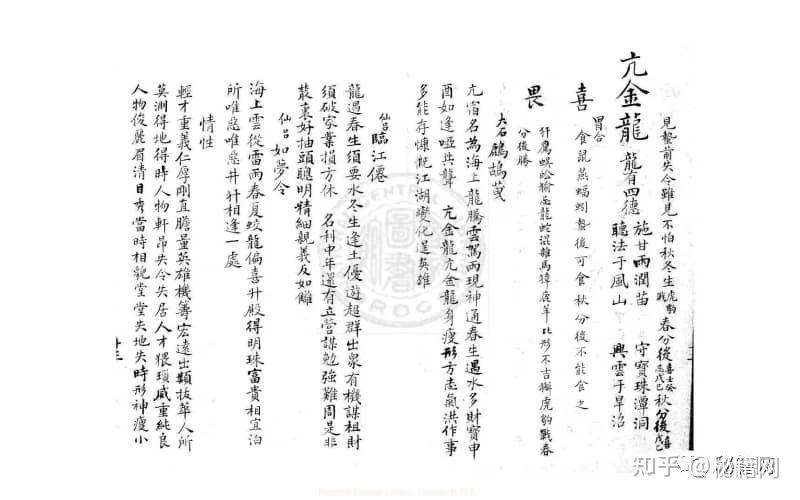 亢金龍 龍有四德 施甘雨潤苗 守寶珠潭洞
聽法于風山 興雲于旱沼
見蟄前失令雖見不怕秋冬生 春分後 秋分後
喜 胃合 食鼠燕蝠蚓蟄後可食秋分後不能食之
畏 犴鷹蜈蚣獝 龍蛇混雜馬獐 羊比形不吉獬虎豹戰春
分後勝
大石 鷓鴣
亢宿名為海上龍騰雲駕雨現神通春生遇水多財寶申
酉如逢啞共聾 亢金龍亢金龍身瘦形方志氣洪作事
多能存慷慨江湖變化逞英雄
仙呂 臨江僊
龍遇春生須要水冬生逢土優遊超群出眾有機謀祖財
須破家業損方休 名利中年還有立營謀勉強難周是非
叢裏好抽頭聰明精細親義反如讎
仙呂 如夢令
海上雲從雷雨春夏蛟龍偏喜升殿得明珠富貴相宜泊
所唯惡唯惡井犴相逢一處
情性
輕才重義仁厚剛直膽量英雄機籌宏遠出類拔萃人所
莫測得地得時人物軒昂失令失居人才猥瑣威重純良
人物俊麗眉清目秀當時相貌堂堂失地失時形神瘦小
廿三
知乎 @秘籍网